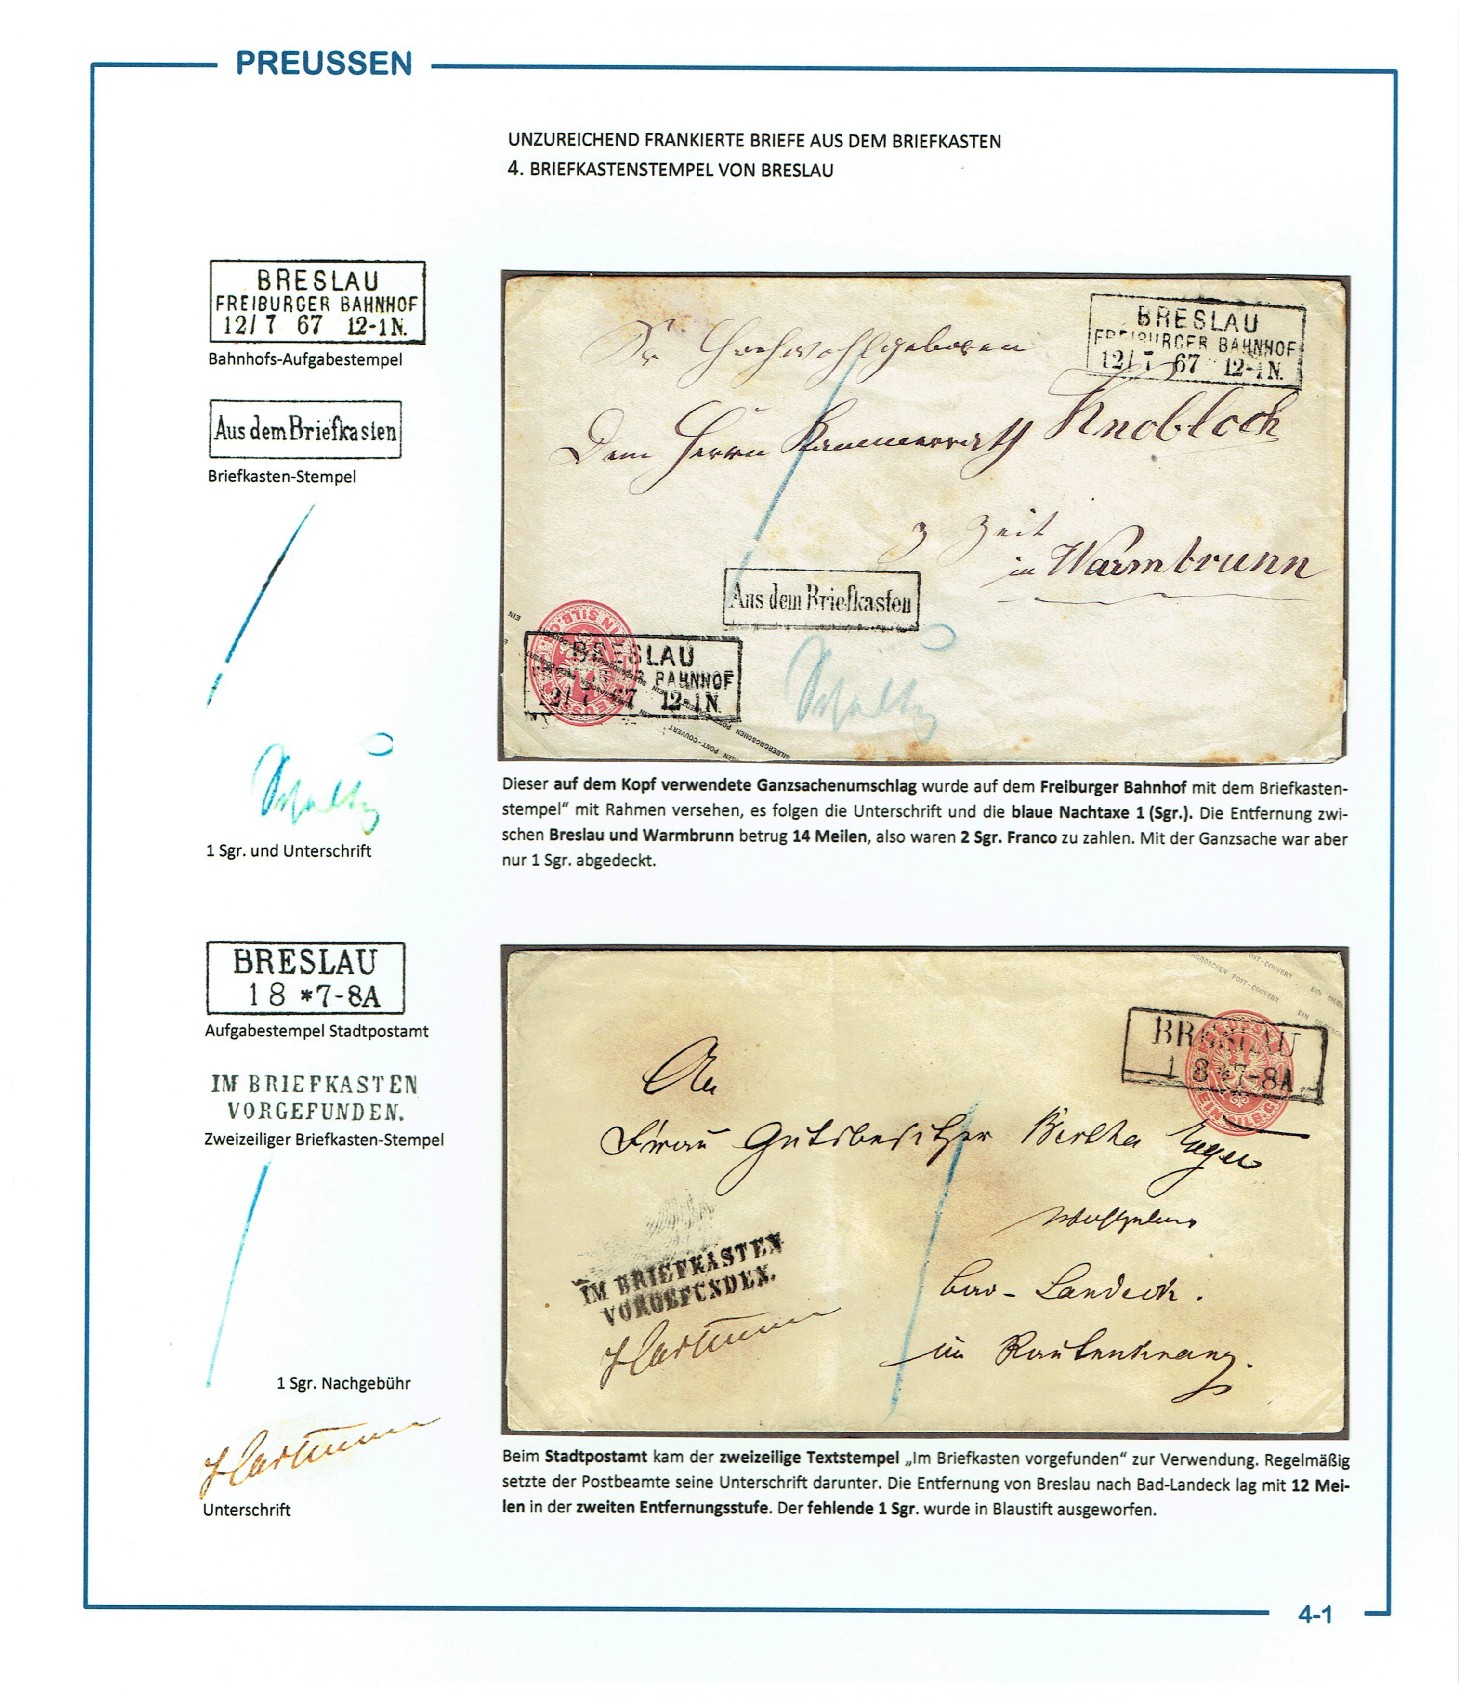 PREUSSEN
UNZUREICHEND FRANKIERTE BRIEFE AUS DEM BRIEFKASTEN
4. BRIEFKASTENSTEMPEL VON BRESLAU
BRESLAU
FREIBURGER BAHNHOF
12/7 67 12-1N.
Bahnhofs-Aufgabestempel
Aus dem Briefkasten
Briefkasten-Stempel
1 Sgr. und Unterschrift
BRESLAU
FREIBURGER BAHNHOF
12/7 67 12-1N.
Sr Hochwohlgeboren
Dem Herrn Kammerrath Knobloch
z Zeit
in Warmbrunn
Aus dem Briefkasten
BRESLAU
BAHNHOF
12/7 67 12-1N.
Dieser auf dem Kopf verwendete Ganzsachenumschlag wurde auf dem Freiburger Bahnhof mit dem Briefkasten-
stempel“ mit Rahmen versehen, es folgen die Unterschrift und die blaue Nachtaxe 1 (Sgr.). Die Entfernung zwi-
schen Breslau und Warmbrunn betrug 14 Meilen, also waren 2 Sgr. Franco zu zahlen. Mit der Ganzsache war aber
nur 1 Sgr. abgedeckt.
BRESLAU
18 *7-8A
Aufgabestempel Stadtpostamt
IM BRIEFKASTEN
VORGEFUNDEN.
Zweizeiliger Briefkasten-Stempel
1 Sgr. Nachgebühr
Hartmann
Unterschrift
BRESLAU
18 *7-8A
An
Frau Gutsbesitzer Bertha
Bad-Landeck.
im Rautenkranz.
IM BRIEFKASTEN
VORGEFUNDEN.
Hartmann
Beim Stadtpostamt kam der zweizeilige Textstempel „Im Briefkasten vorgefunden“ zur Verwendung. Regelmäßig
setzte der Postbeamte seine Unterschrift darunter. Die Entfernung von Breslau nach Bad-Landeck lag mit 12 Mei-
len in der zweiten Entfernungsstufe. Der fehlende 1 Sgr. wurde in Blaustift ausgeworfen.
4-1